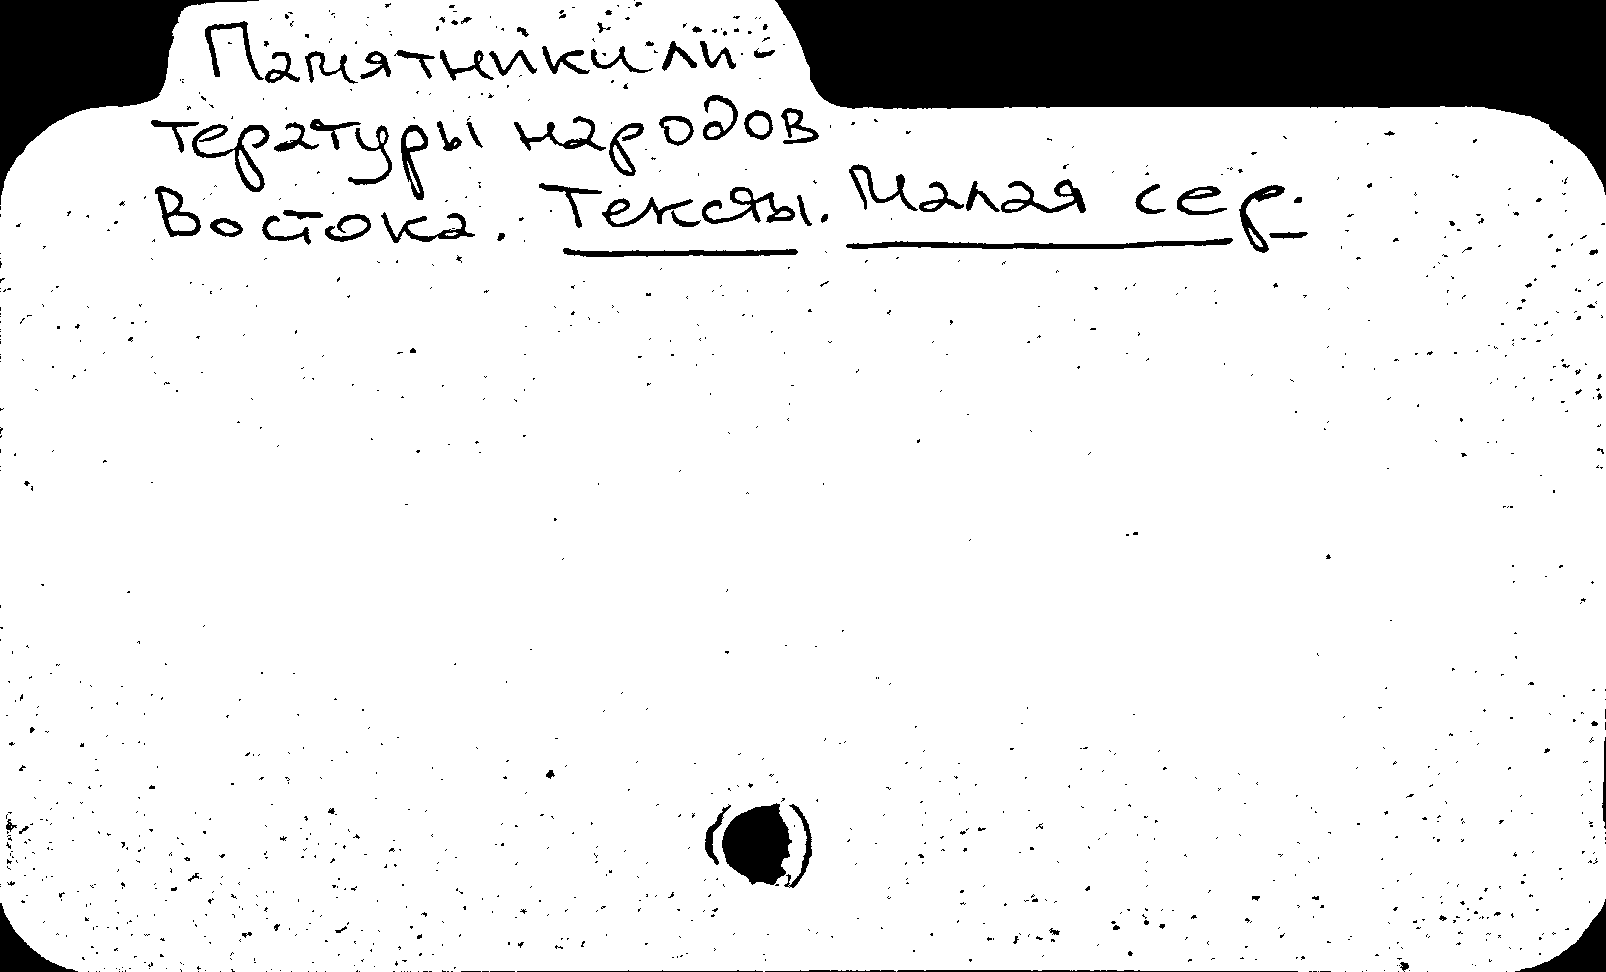 Памятники ли-
тературы народов
Востока. Тексты. Малая сер.